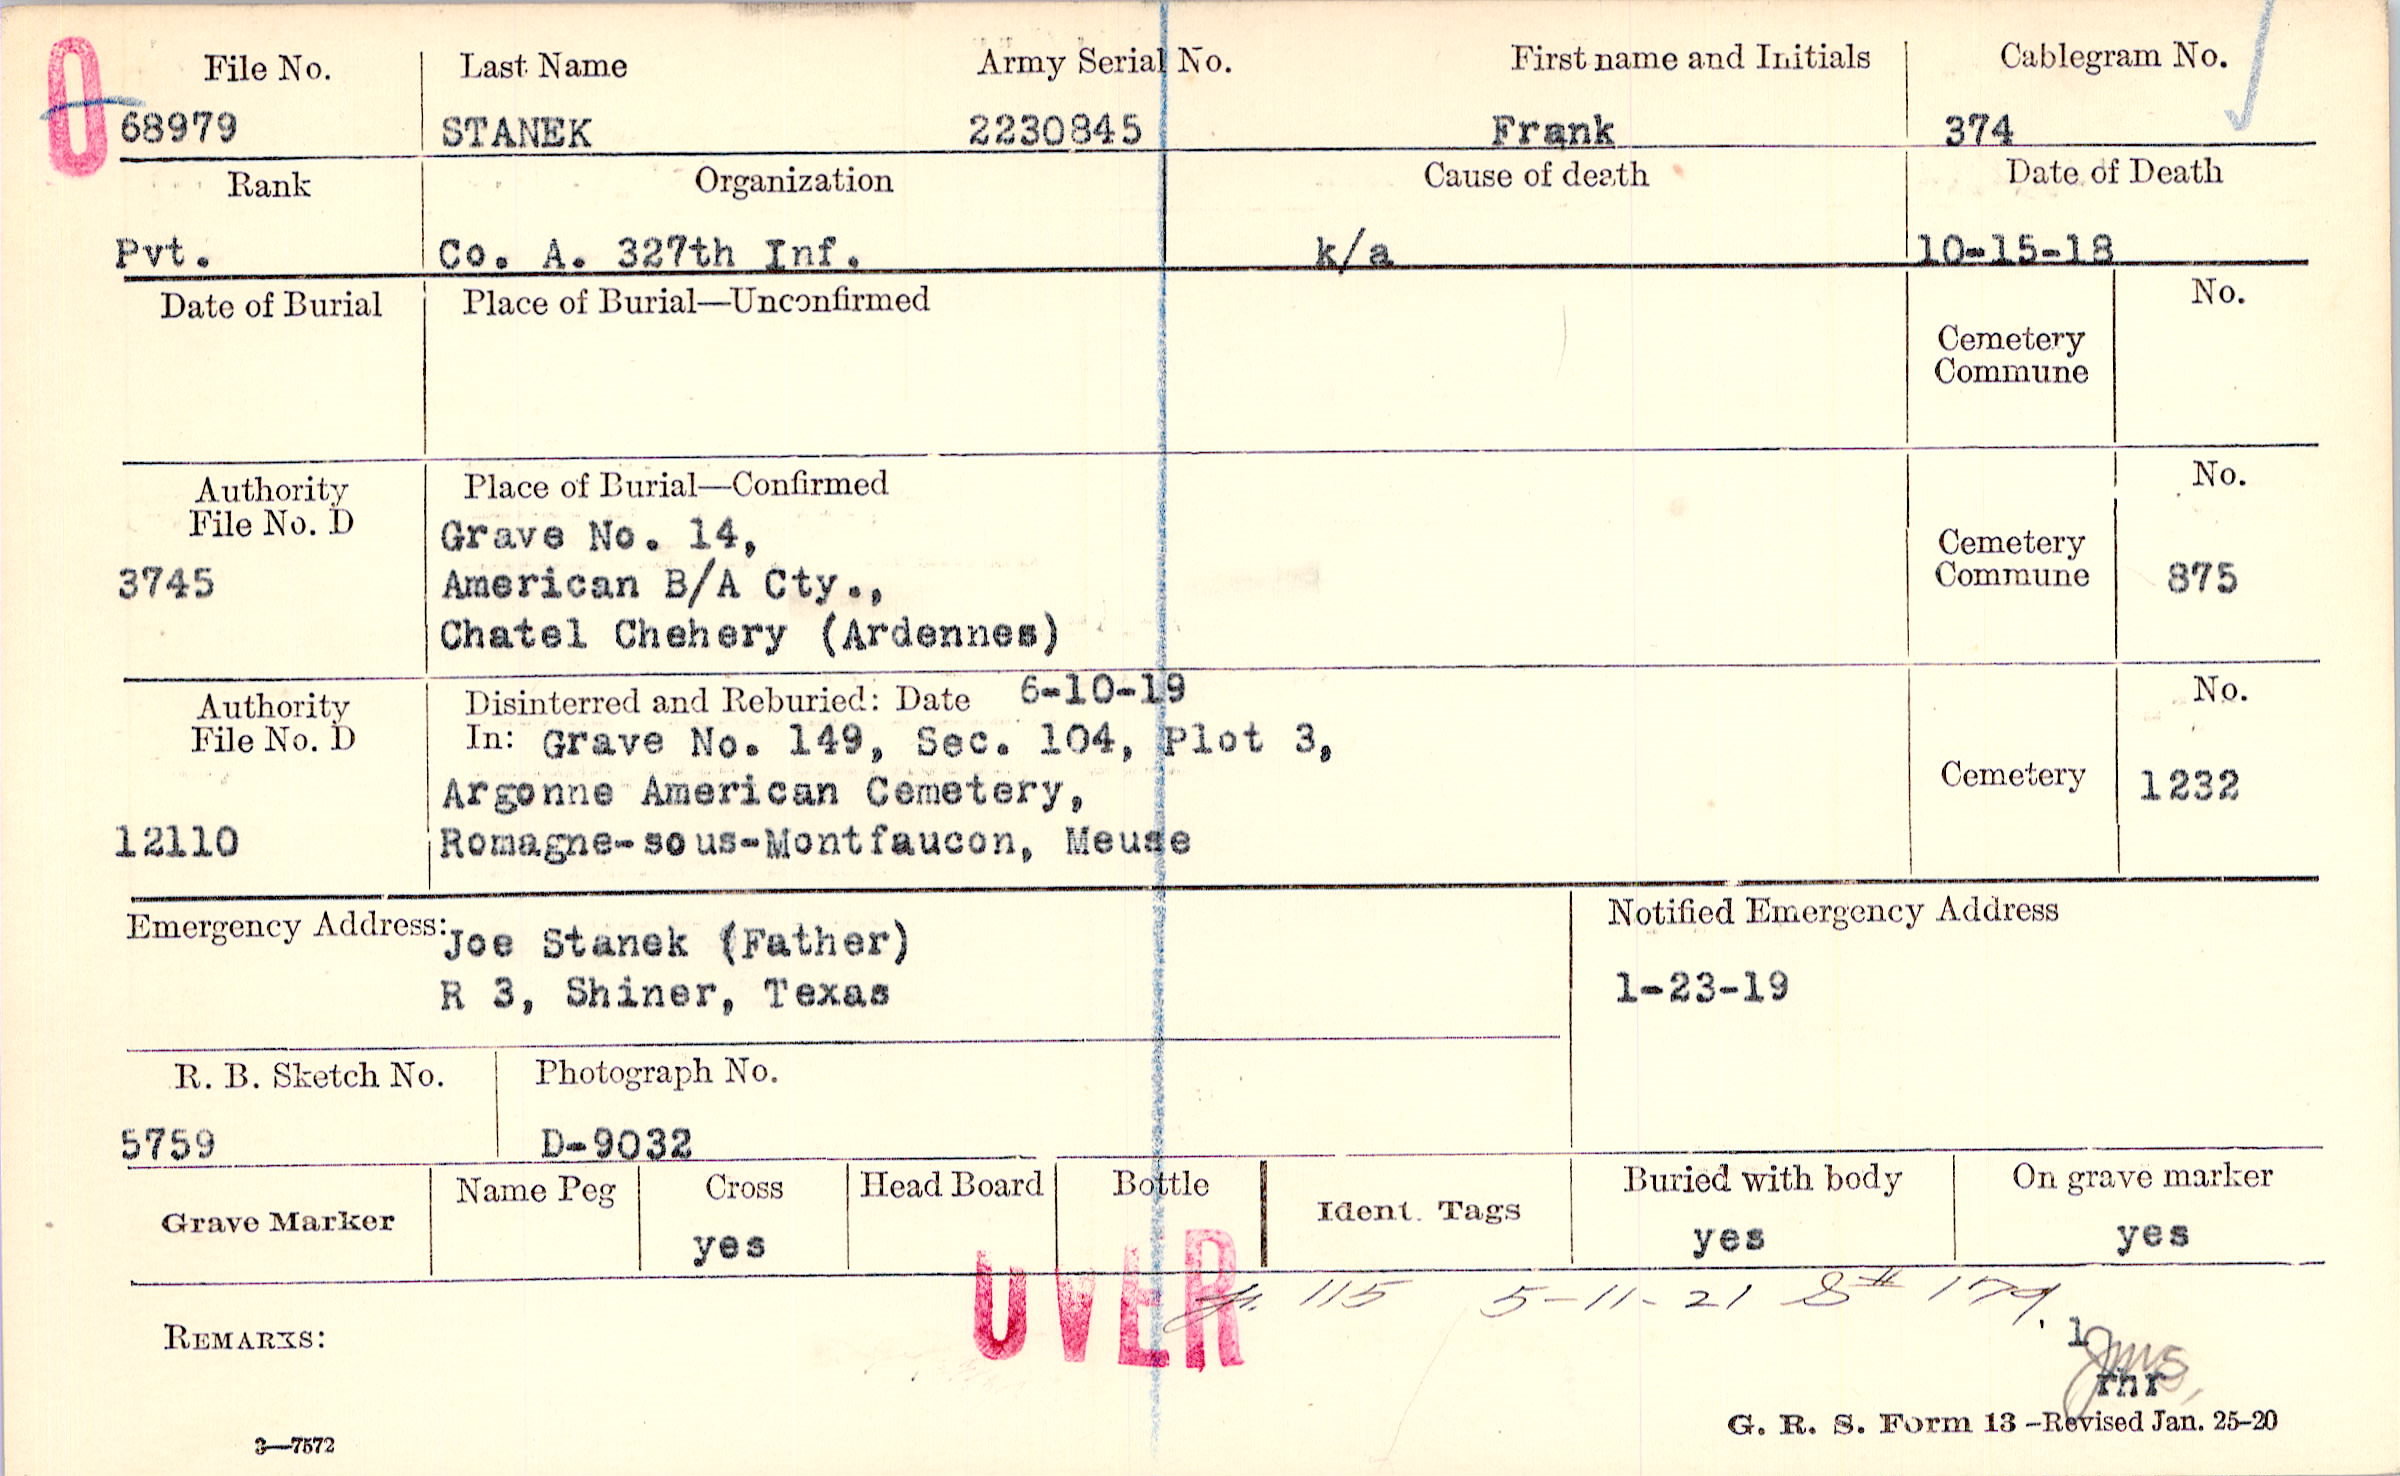 O
File No. Last Name Army Serial No. First name and Initials Cablegram No.
68979 STANEK 2230845 Frank 374
Rank Organization Cause of death Date of Death
Pvt. Co. A. 327th Inf. k/a 10-15-18
Date of Burial Place of Burial—Unconfirmed No.
Cemetery
Commune
Authority Place of Burial—Confirmed No.
File No. D Grave No. 14,
3745 American B/A Cty., Cemetery Commune 875
Chatel Chehery (Ardennes)
Authority Disinterred and Reburied: Date 6-10-19 No.
File No. D In: Grave No. 149, Sec. 104, Plot 3,
Argonne American Cemetery, Cemetery 1232
12110 Romagne-sous-Montfaucon, Meuse
Emergency Address: Joe Stanek (Father) Notified Emergency Address
R 3, Shiner, Texas 1-23-19
R. B. Sketch No. Photograph No.
5759 D-9032
Grave Marker Name Peg Cross Head Board Bottle Ident. Tags Buried with body On grave marker
yes yes yes
OVER
115 5-11-21 S# 179.
REMARKS: 1
rhr
G. R. S. Form 13 -Revised Jan. 25-20
3—7572